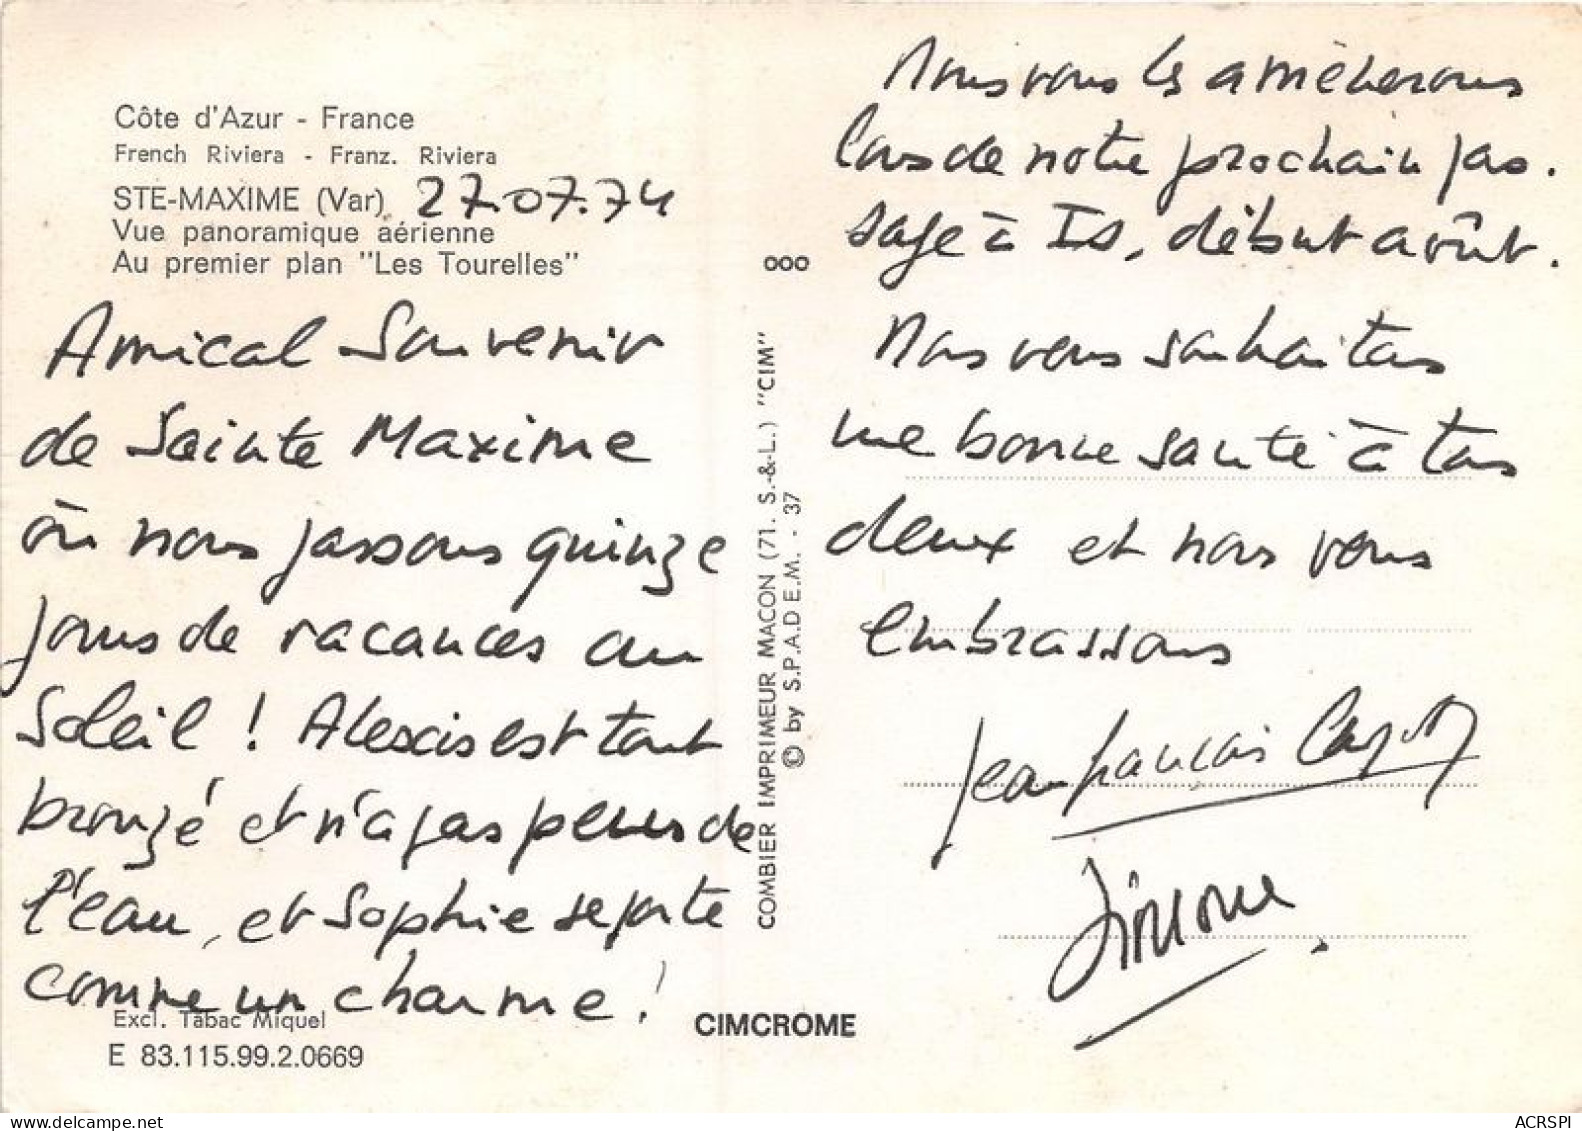 Côte d'Azur - France
French Riviera - Franz. Riviera
STE-MAXIME (Var) 27.07.74
Vue panoramique aérienne
Au premier plan "Les Tourelles"
Amical Souvenir
de Sainte Maxime
où nous passons quinze
jours de vacances au
soleil ! Alexis est tout
bronzé et n'a pas peur de
l'eau, et Sophie se porte
comme un charme !
Excl. Tabac Miquel
E 83.115.99.2.0669
ooo
COMBIER IMPRIMEUR MACON (71. S.-&-L.) "CIM"
© by S.P.A.D.E.M. - 37
CIMCROME
Nous vous les amènerons
lors de notre prochain pas.
sage à Is, début août.
Nous vous souhaitons
une bonne santé à tous
deux et nous vous
embrassons
Jean françois
Simone.
ACRSPI